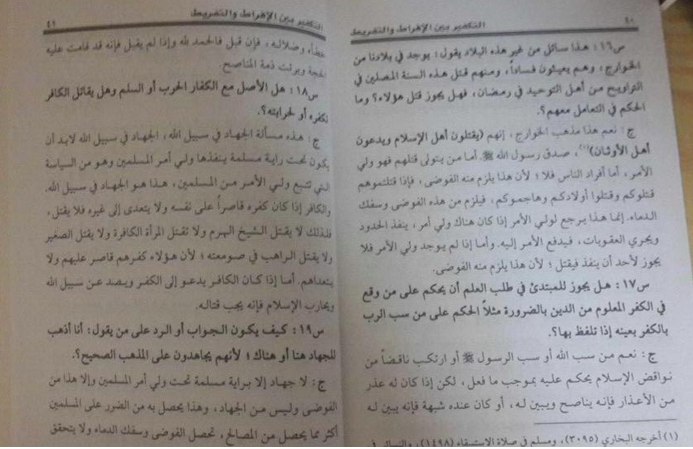 ٤٠
التكفير بين الإفراط والتفريط
س١٦: هذا سائل من غير هذه البلاد يقول: يوجد في بلادنا من
الخوارج، وهم يعيثون فساداً، ومنهم قتل هذه السنة المصلين في
التراويح من أهل التوحيد في رمضان، فهل يجوز قتل هؤلاء؟ وما
الحكم في التعامل معهم؟
ج: نعم هذا مذهب الخوارج، إنهم (يقتلون أهل الإسلام ويدعون
أهل الأوثان)(١)، صدق رسول الله ﷺ. أما من يتولى قتلهم فهو ولي
الأمر، أما أفراد الناس فلا؛ لأن هذا يلزم منه الفوضى؛ فإذا قتلتموهم
قتلوكم وقتلوا أولادكم وهاجموكم، فيلزم من هذه الفوضى وسفك
الدماء. إنما هذا يرجع لولي الأمر إذا كان هناك ولي أمر، ينفذ الحدود
ويجري العقوبات، فيدفع الأمر إليه. وأما إذا لم يوجد ولي الأمر فلا
يجوز لأحد أن ينفذ فيقتل؛ لأن هذا يلزم منه الفوضى.
س١٧: هل يجوز للمبتدئ في طلب العلم أن يحكم على من وقع
في الكفر المعلوم من الدين بالضرورة مثلاً الحكم على من سب الرب
بالكفر بعينه إذا تلفظ بها؟.
ج: نعم من سب الله أو سب الرسول ﷺ أو ارتكب ناقضاً من
نواقض الإسلام يحكم عليه بموجب ما فعل، لكن إذا كان له عذر
من الأعذار فإنه يناصح ويبين له، أو كان عنده شبهة فإنه يبين له
(١) أخرجه البخاري (٣٠٩٥)، ومسلم في صلاة الاستسقاء (١٤٩٨)، والنسائي في
التكفير بين الإفراط والتفريط
٤١
خطأه وضلاله، فإن قبل فالحمد لله وإذا لم يقبل فإنه قد قامت عليه
الحجة وبرئت ذمة المناصح.
س١٨: هل الأصل مع الكفار الحرب أو السلم وهل يقاتل الكافر
لكفره أو لحرابته؟.
ج: هذه مسألة الجهاد في سبيل الله، الجهاد في سبيل الله لابد أن
يكون تحت راية مسلمة ينفذها ولي أمر المسلمين وهو من السياسة
التي تتبع ولي الأمر من المسلمين، هذا هو الجهاد في سبيل الله.
والكافر إذا كان كفره قاصراً على نفسه ولا يتعدى إلى غيره فلا يقتل،
فلذلك لا يقتل الشيخ الهرم ولا تقتل المرأة الكافرة ولا يقتل الصغير
ولا يقتل الراهب في صومعته؛ لأن هؤلاء كفرهم قاصر عليهم ولا
يتعداهم. أما إذا كان الكافر يدعو إلى الكفر ويصد عن سبيل الله
ويحارب الإسلام فإنه يجب قتاله.
س١٩: كيف يكون الجواب أو الرد على من يقول: أنا أذهب
للجهاد هنا أو هناك؛ لأنهم يجاهدون على المذهب الصحيح؟.
ج: لا جهاد إلا براية مسلمة تحت ولي أمر المسلمين وإلا هذا من
الفوضى وليس من الجهاد، وهذا يحصل به من الضرر على المسلمين
أكثر مما يحصل من المصالح، تحصل الفوضى وسفك الدماء ولا يتحقق